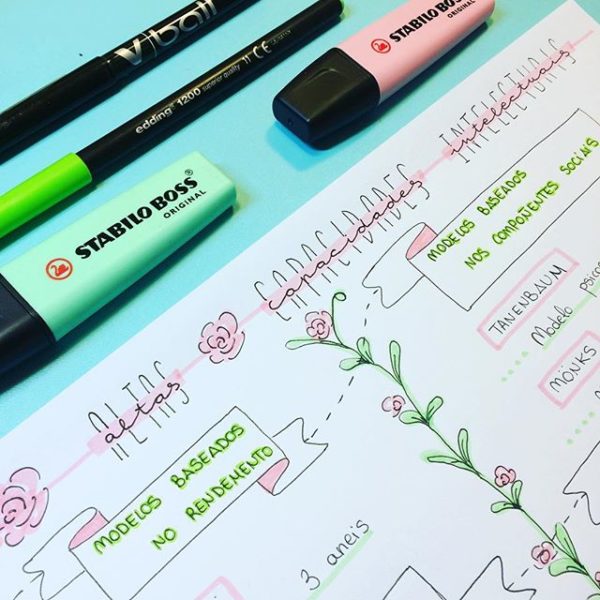 V ball
edding 1200 superior quality 11 CE
STABILO BOSS
ORIGINAL
STABILO BOSS
ORIGINAL
ALTAS CAPACIDADES INTELECTUAIS
altas capacidades intelectuais
MODELOS BASEADOS
NO RENDEMENTO
3 aneis
MODELOS BASEADOS
NOS COMPOÑENTES SOCIAIS
TANENBAUM
Modelo
MÖNKS